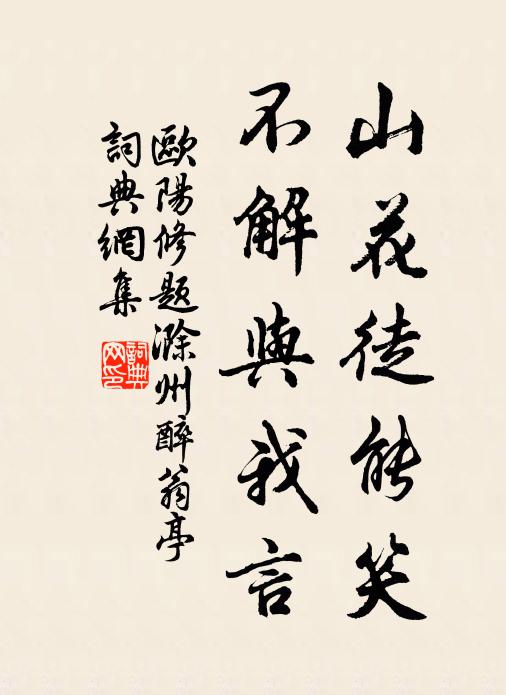 山花徒能笑
不解與我言
歐陽修題滁州醉翁亭
詞典網集
詞典
网印